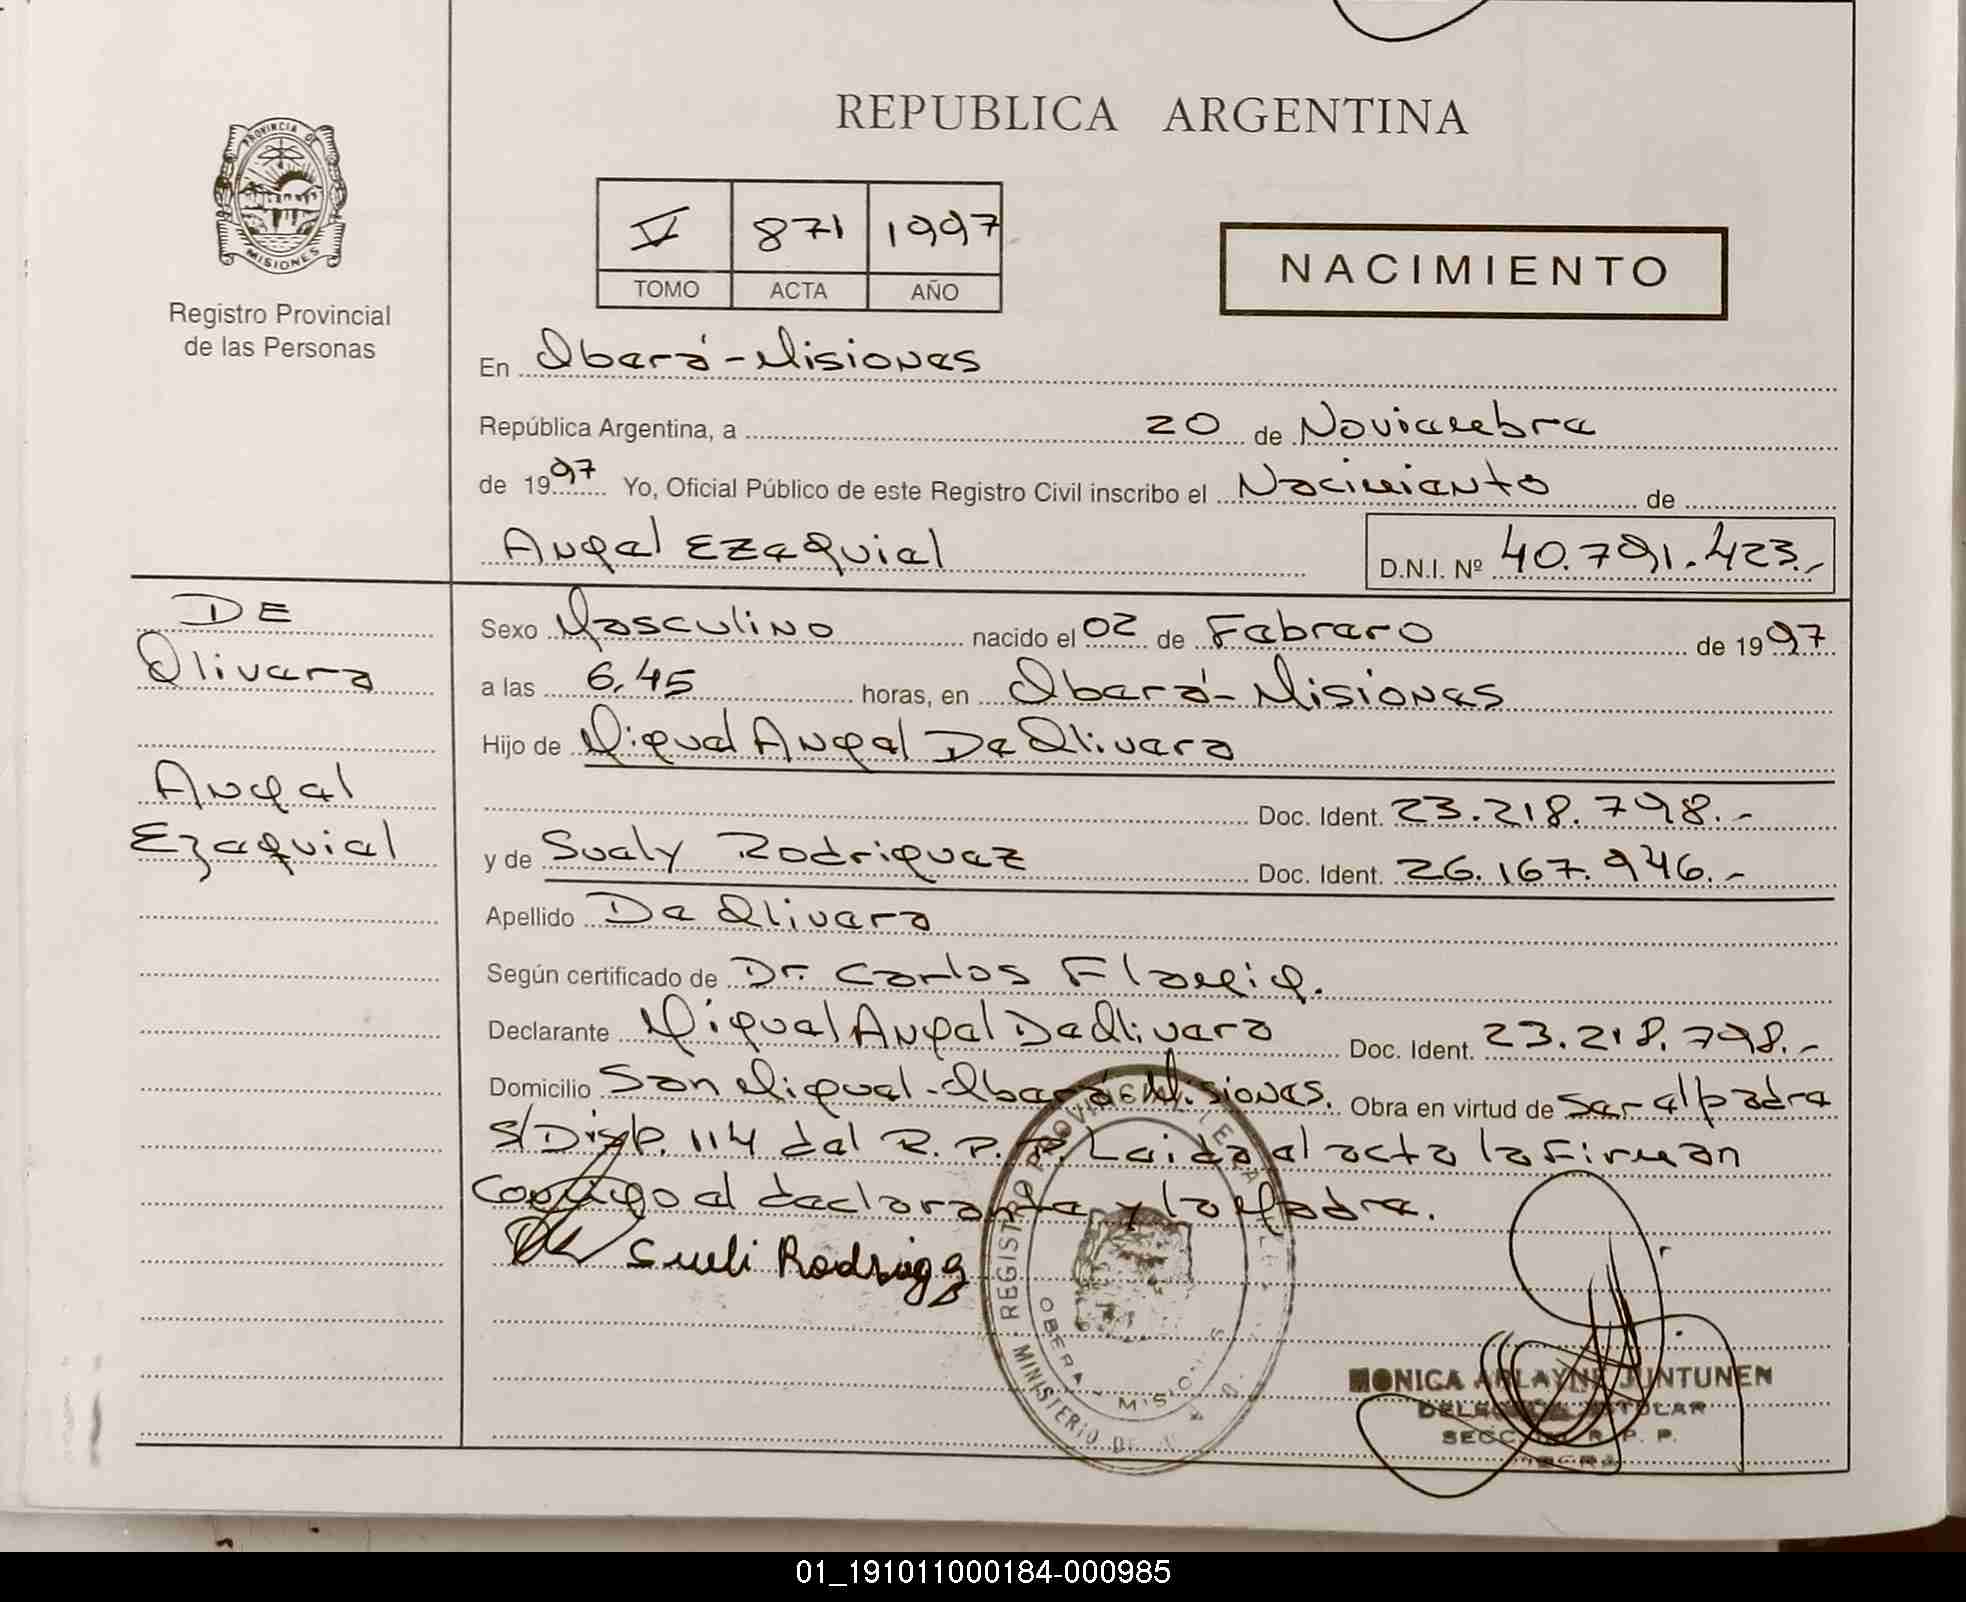 REPUBLICA ARGENTINA
PROVINCIA DE
MISIONES
Registro Provincial
de las Personas
V 871 1997
TOMO ACTA AÑO
NACIMIENTO
En Oberá - Misiones
República Argentina, a 20 de Noviembre
de 1997 Yo, Oficial Público de este Registro Civil inscribo el Nacimiento de
Angel Ezequiel D.N.I. Nº 40.791.423.-
DE
Olivera
Angel
Ezequiel
Sexo Masculino nacido el 02 de Febrero de 1997
a las 6,45 horas, en Oberá - Misiones
Hijo de Miguel Angel De Olivera
Doc. Ident. 23.218.798.-
y de Suely Rodriguez Doc. Ident. 26.167.946.-
Apellido De Olivera
Según certificado de Dr. Carlos Flemig.
Declarante Miguel Angel De Olivera Doc. Ident. 23.218.798.-
Domicilio San Miguel - Oberá Misiones. Obra en virtud de ser el padre
S/Disp. 114 del R. P. P. Leida el acta la firman
Conmigo el declarante y la Madre.
Sueli Rodrigg
REGISTRO PROVINCIAL DE LA
OBERA - MISIONES
MINISTERIO DE
MONICA ARLAYNE JUNTUNEN
DELEGADA TITULAR
SECC. R. P. P.
01_191011000184-000985